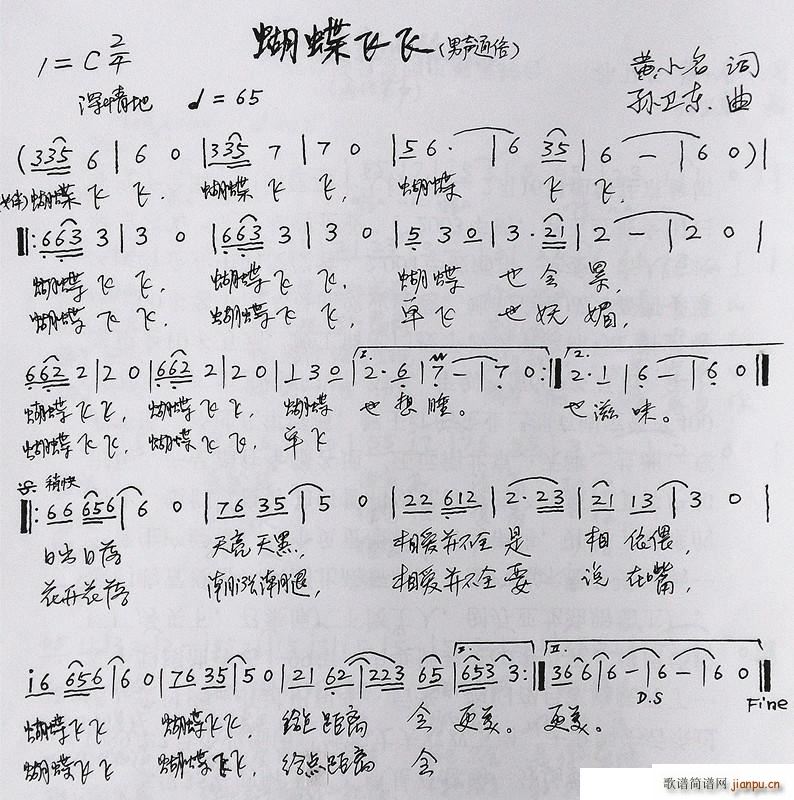 蝴蝶飞飞(男声通俗)
1=C 2/4
黄小名 词
深情地 ♩=65
孙卫东 曲
(335 6 | 6 0 | 335 7 | 7 0 | 56· | 6 35 | 6 — | 6 0) |
蝴蝶飞飞, 蝴蝶飞飞, 蝴蝶 飞 飞,
‖: 663 3 | 3 0 | 663 3 | 3 0 | 5 3 0 | 3· 21 | 2 — | 2 0 |
蝴蝶飞飞, 蝴蝶飞飞, 蝴蝶 也会累,
蝴蝶飞飞, 蝴蝶飞飞, 单飞 也妩媚,
662 2 | 2 0 | 662 2 | 2 0 | 1 3 0 | 1. 2· 6 | 7 — | 7 0 :‖ 2. 2· 1 | 6 — | 6 0 ‖
蝴蝶飞飞, 蝴蝶飞飞, 蝴蝶 也想睡。 也滋味。
蝴蝶飞飞, 蝴蝶飞飞, 单飞
稍快
‖: 66 656 | 6 0 | 76 35 | 5 0 | 22 612 | 2· 23 | 21 13 | 3 0 |
日出日落 天亮天黑, 相爱并不全是 相依偎,
花开花落 潮涨潮退, 相爱并不全要 说在嘴,
i6 656 | 6 0 | 76 35 | 5 0 | 21 62 | 223 65 | 1. 653 3 :‖ 2. 36 6 | 6 — | 6 — | 6 0 ‖
D.S
Fine
蝴蝶飞飞 蝴蝶飞飞, 给点距离 会 更美。 更美。
蝴蝶飞飞 蝴蝶飞飞, 给点距离 会
歌谱简谱网 jianpu.cn